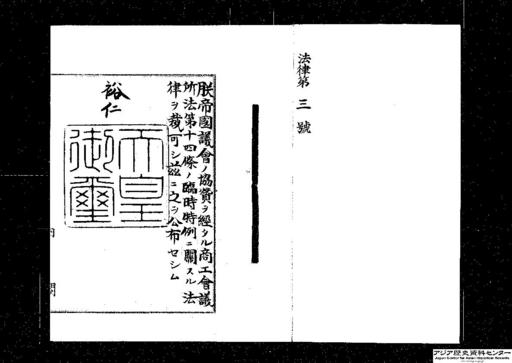 法律第三號
朕帝國議會ノ協賛ヲ經タル商工會議
所法第十四條ノ臨時特例ニ關スル法
律ヲ裁可シ茲ニ之ヲ公布セシム
裕仁
天皇
御璽
内
閣
アジア歴史資料センター
Japan Center for Asian Historical Records